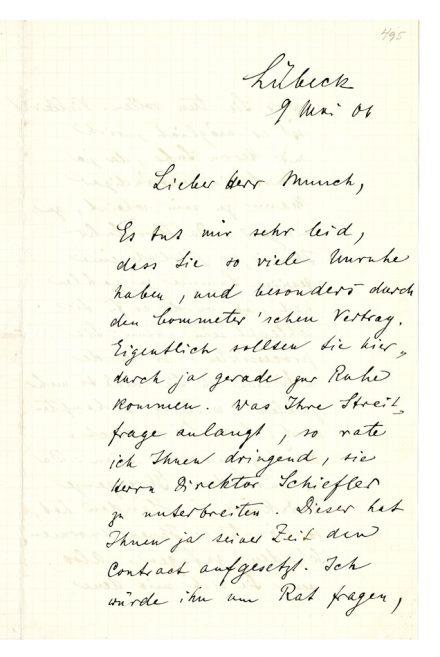 495
Lübeck
9 Mai 06
Lieber Herr Munch,
Es tut mir sehr leid,
dass Sie so viele Unruhe
haben, und besonders durch
den Commeter'schen Vertrag.
Eigentlich sollten Sie hier„
durch ja gerade zur Ruhe
kommen. Was Ihre Streit„
frage anlangt, so rate
ich Ihnen dringend, sie
Herrn Direktor Schiefler
zu unterbreiten. Dieser hat
Ihnen ja seiner Zeit den
Contract aufgesetzt. Ich
würde ihn um Rat fragen,